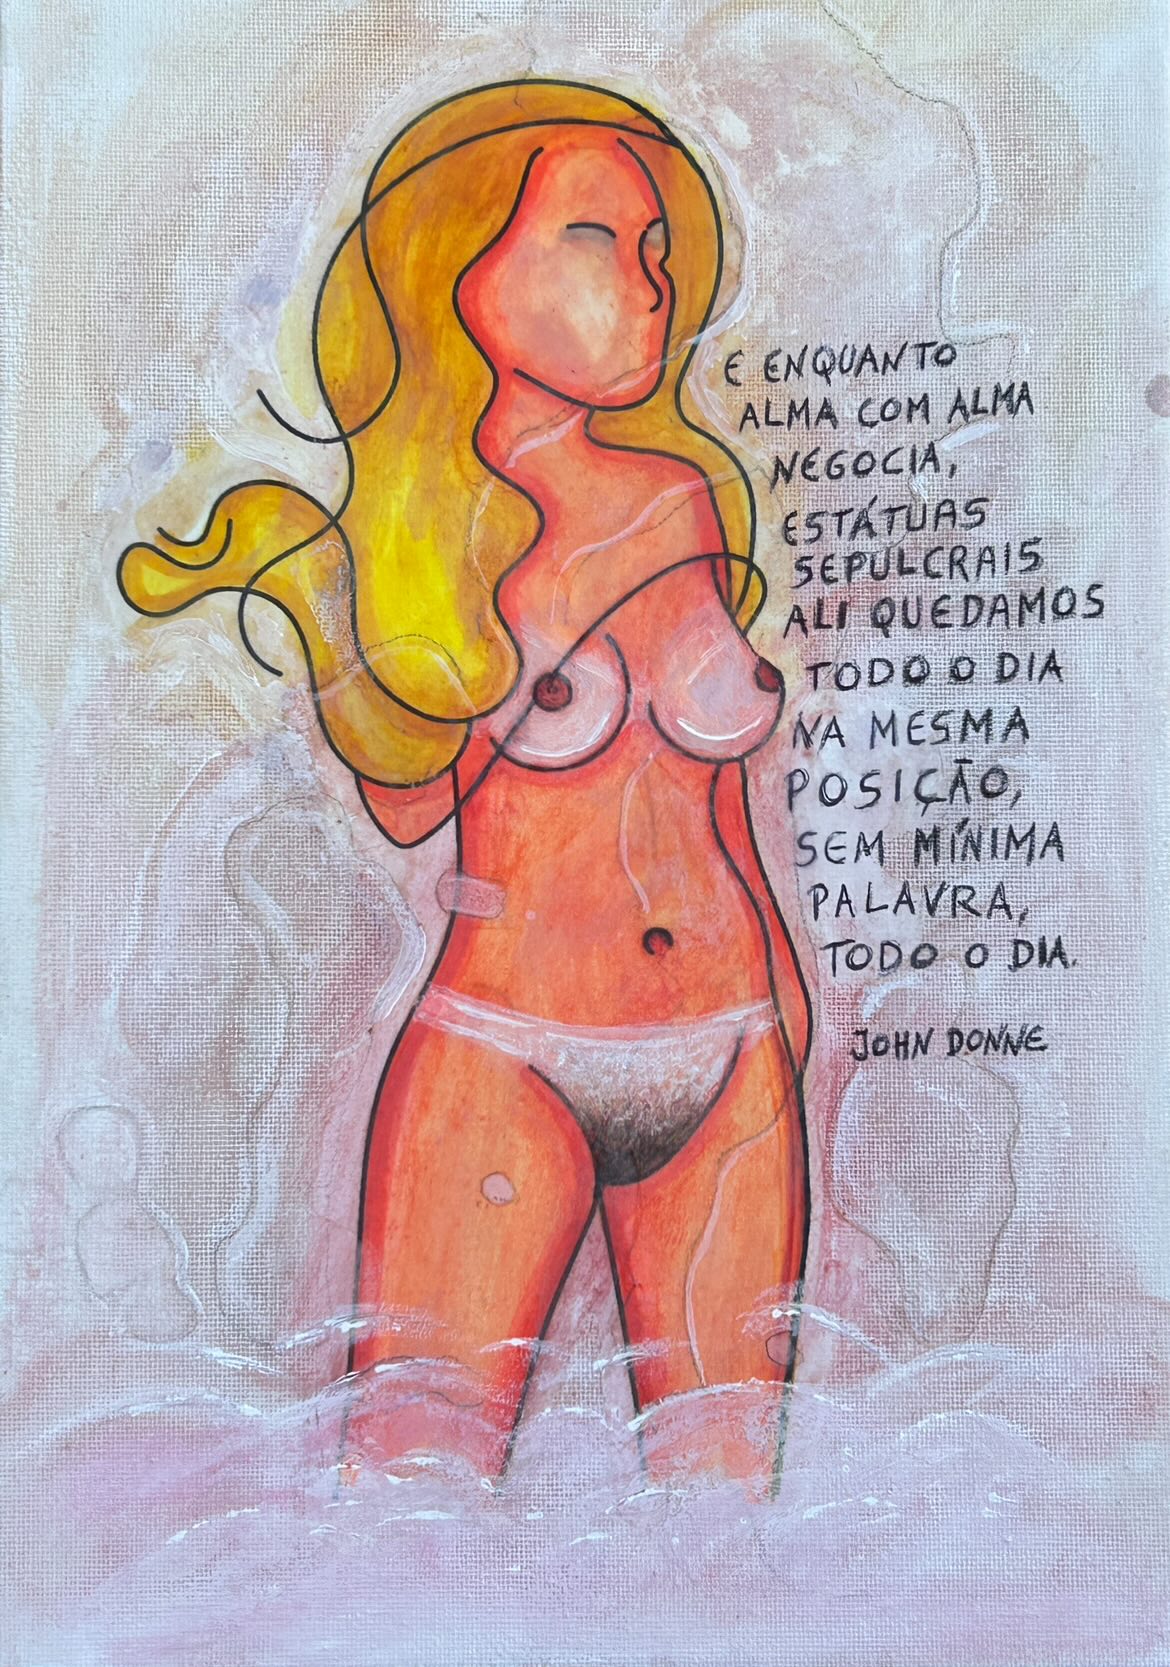 E ENQUANTO
ALMA COM ALMA
NEGOCIA,
ESTÁTUAS
SEPULCRAIS
ALI QUEDAMOS
TODO O DIA
NA MESMA
POSIÇÃO,
SEM MÍNIMA
PALAVRA,
TODO O DIA.
JOHN DONNE